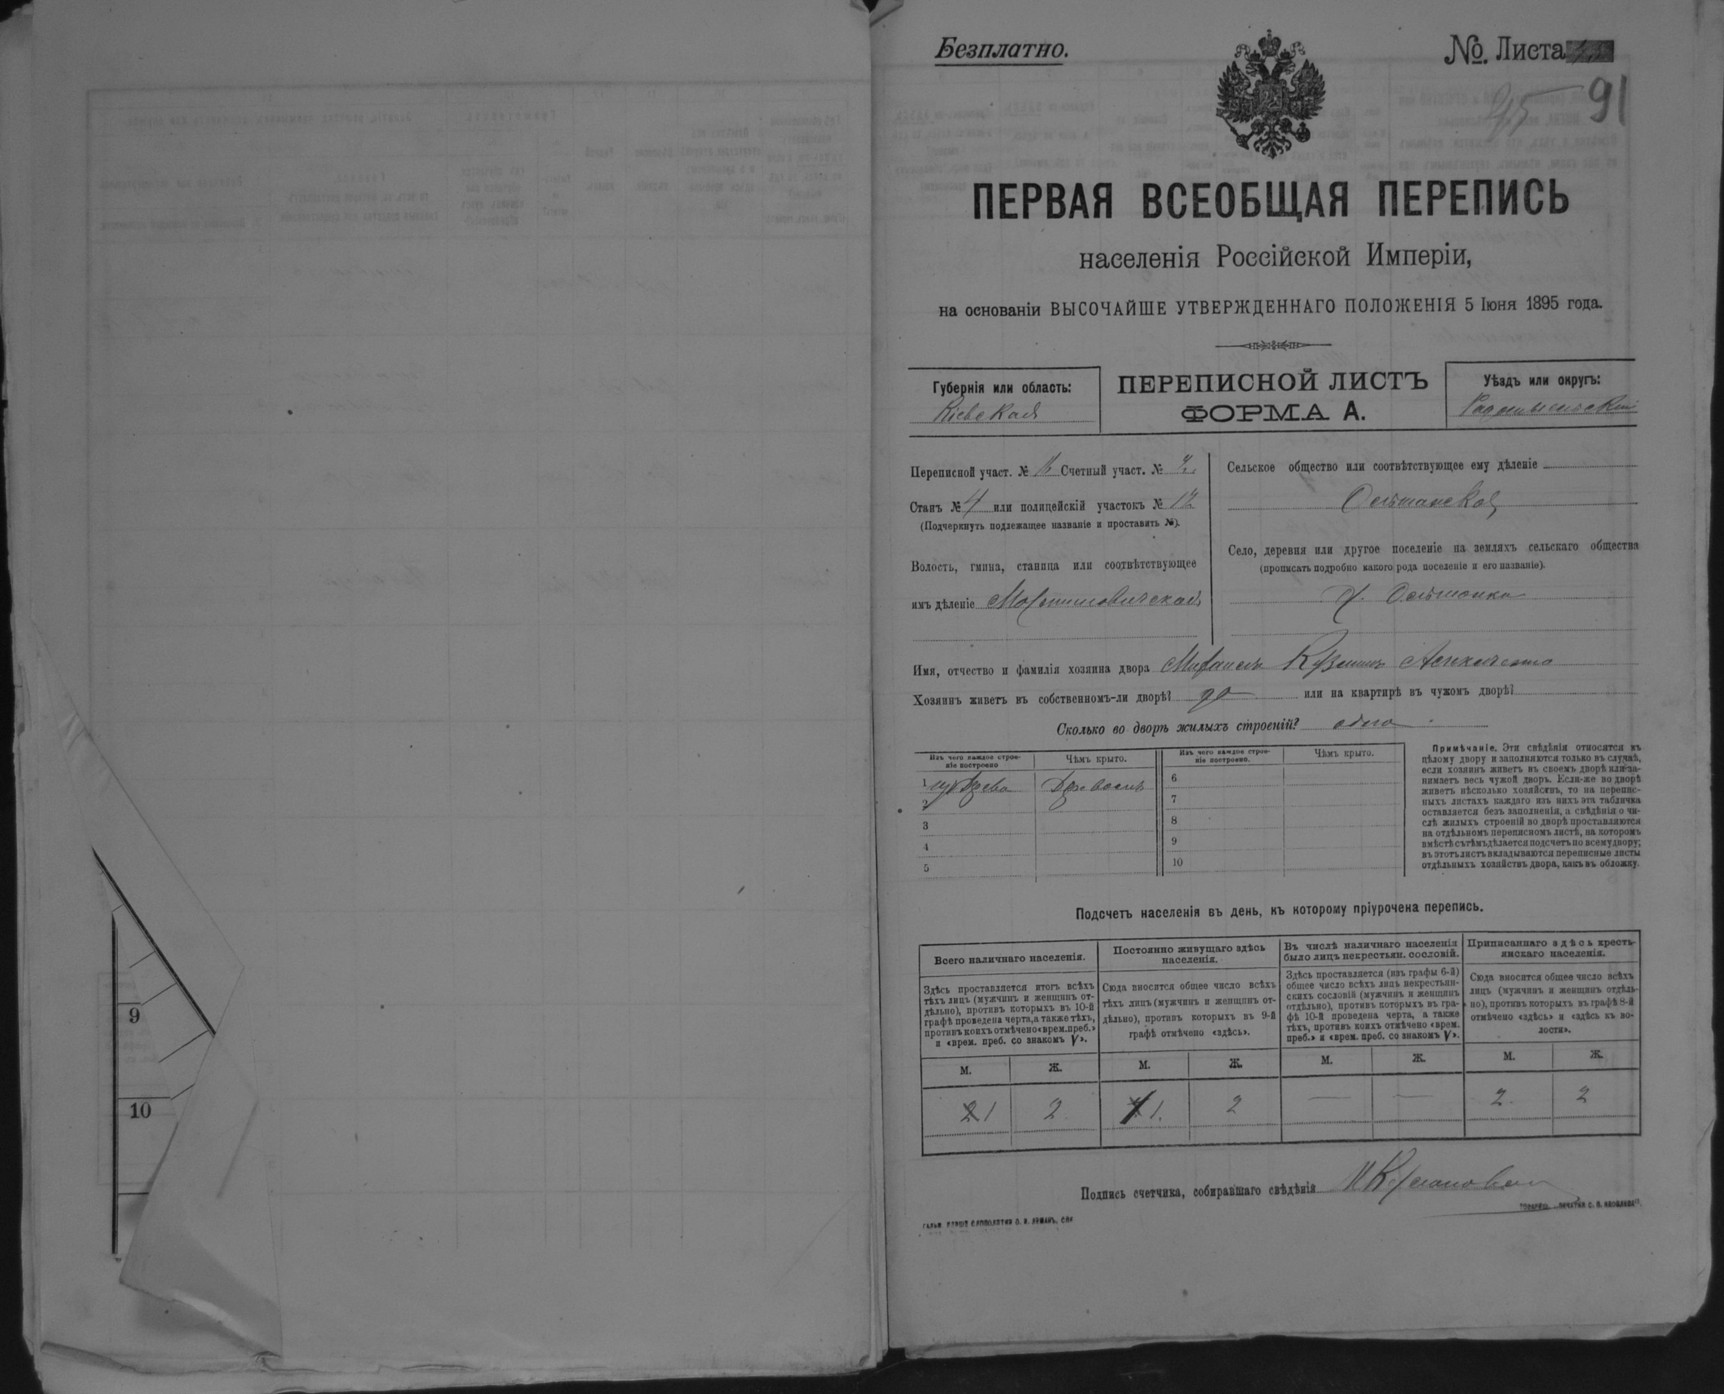 Безплатно.
№. Листа
91
ПЕРВАЯ ВСЕОБЩАЯ ПЕРЕПИСЬ
населенія Россійской Имперіи,
на основаніи ВЫСОЧАЙШЕ УТВЕРЖДЕННАГО ПОЛОЖЕНІЯ 5 Іюня 1895 года.
Губернія или область:
Кіевская
ПЕРЕПИСНОЙ ЛИСТЪ
ФОРМА А.
Уѣздъ или округъ:
Радомысльскій
Переписной участ. № Счетный участ. №
Станъ № 4 или полицейскій участокъ № 12
(Подчеркнуть подлежащее названіе и проставить №).
Волость, гмина, станица или соотвѣтствующее
имъ дѣленіе Мартиновичская
Сельское общество или соотвѣтствующее ему дѣленіе
Село, деревня или другое поселеніе на земляхъ сельскаго общества
(прописать подробно какого рода поселеніе и его названіе).
Имя, отчество и фамилія хозяина двора
Хозяинъ живетъ въ собственномъ-ли дворѣ? да или на квартирѣ въ чужомъ дворѣ?
Сколько во дворѣ жилыхъ строеній? одно
Изъ чего каждое строе-
ніе построено
Чѣмъ крыто.
Изъ чего каждое строе-
ніе построено.
Чѣмъ крыто.
1 изъ древа
2
3
4
5
6
7
8
9
10
Примѣчаніе. Эти свѣдѣнія относятся къ
цѣлому двору и заполняются только въ случаѣ,
если хозяинъ живетъ въ своемъ дворѣ или за-
нимаетъ весь чужой дворъ. Если-же во дворѣ
живетъ нѣсколько хозяйствъ, то на перепис-
ныхъ листахъ каждаго изъ нихъ эта табличка
оставляется безъ заполненія, а свѣдѣнія о чи-
слѣ жилыхъ строеній во дворѣ проставляются
на отдѣльномъ переписномъ листѣ, на которомъ
вмѣстѣ съ тѣмъ дѣлается подсчетъ по всему двору;
въ этотъ листъ вкладываются переписные листы
отдѣльныхъ хозяйствъ двора, какъ въ обложку.
Подсчетъ населенія въ день, къ которому пріурочена перепись.
Всего наличнаго населенія.
Здѣсь проставляется итогъ всѣхъ
тѣхъ лицъ (мужчинъ и женщинъ от-
дѣльно), противъ которыхъ въ 10-й
графѣ проведена черта, а также тѣхъ,
противъ коихъ отмѣчено «врем. преб.»
и «врем. преб. со знакомъ V».
Постоянно живущаго здѣсь
населенія.
Сюда вносится общее число всѣхъ
тѣхъ лицъ (мужчинъ и женщинъ от-
дѣльно), противъ которыхъ въ 9-й
графѣ отмѣчено «здѣсь».
Въ числѣ наличнаго населенія
было лицъ некрестьян. сословій.
Здѣсь проставляется (изъ графы 6-й)
общее число всѣхъ лицъ некрестьян-
скихъ сословій (мужчинъ и женщинъ
отдѣльно), противъ которыхъ въ гра-
фѣ 10-й проведена черта, а также
тѣхъ, противъ коихъ отмѣчено «врем.
преб.» и «врем. преб. со знакомъ V».
Приписаннаго здѣсь кресть-
янскаго населенія.
Сюда вносится общее число всѣхъ
лицъ (мужчинъ и женщинъ отдѣль-
но), противъ которыхъ въ графѣ 8-й
отмѣчено «здѣсь» и «здѣсь къ во-
лости».
М. Ж. М. Ж. М. Ж. М. Ж.
2 1 2 1. 2 — — 2 2
Подпись счетчика, собиравшаго свѣдѣнія
9
10